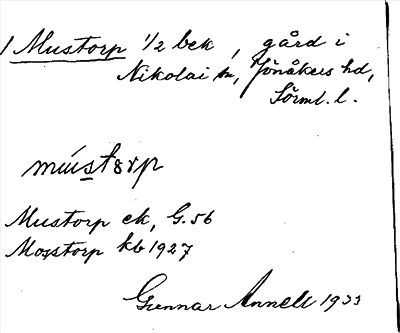 / Mustorp 1/2 bek, gård i
Nikolai sn, Jönåkers hd,
Sörml. l.
mústɷrp
Mustorp ek, G. 56
Mosstorp kb 1927
Gunnar Annell 1933